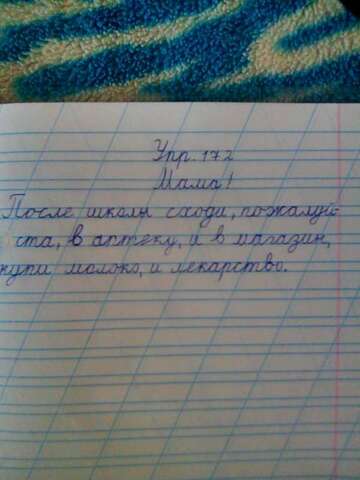 Упр. 172
Мама!
После школы сходи, пожалуй-
ста, в аптеку, и в магазин,
купи молоко, и лекарство.